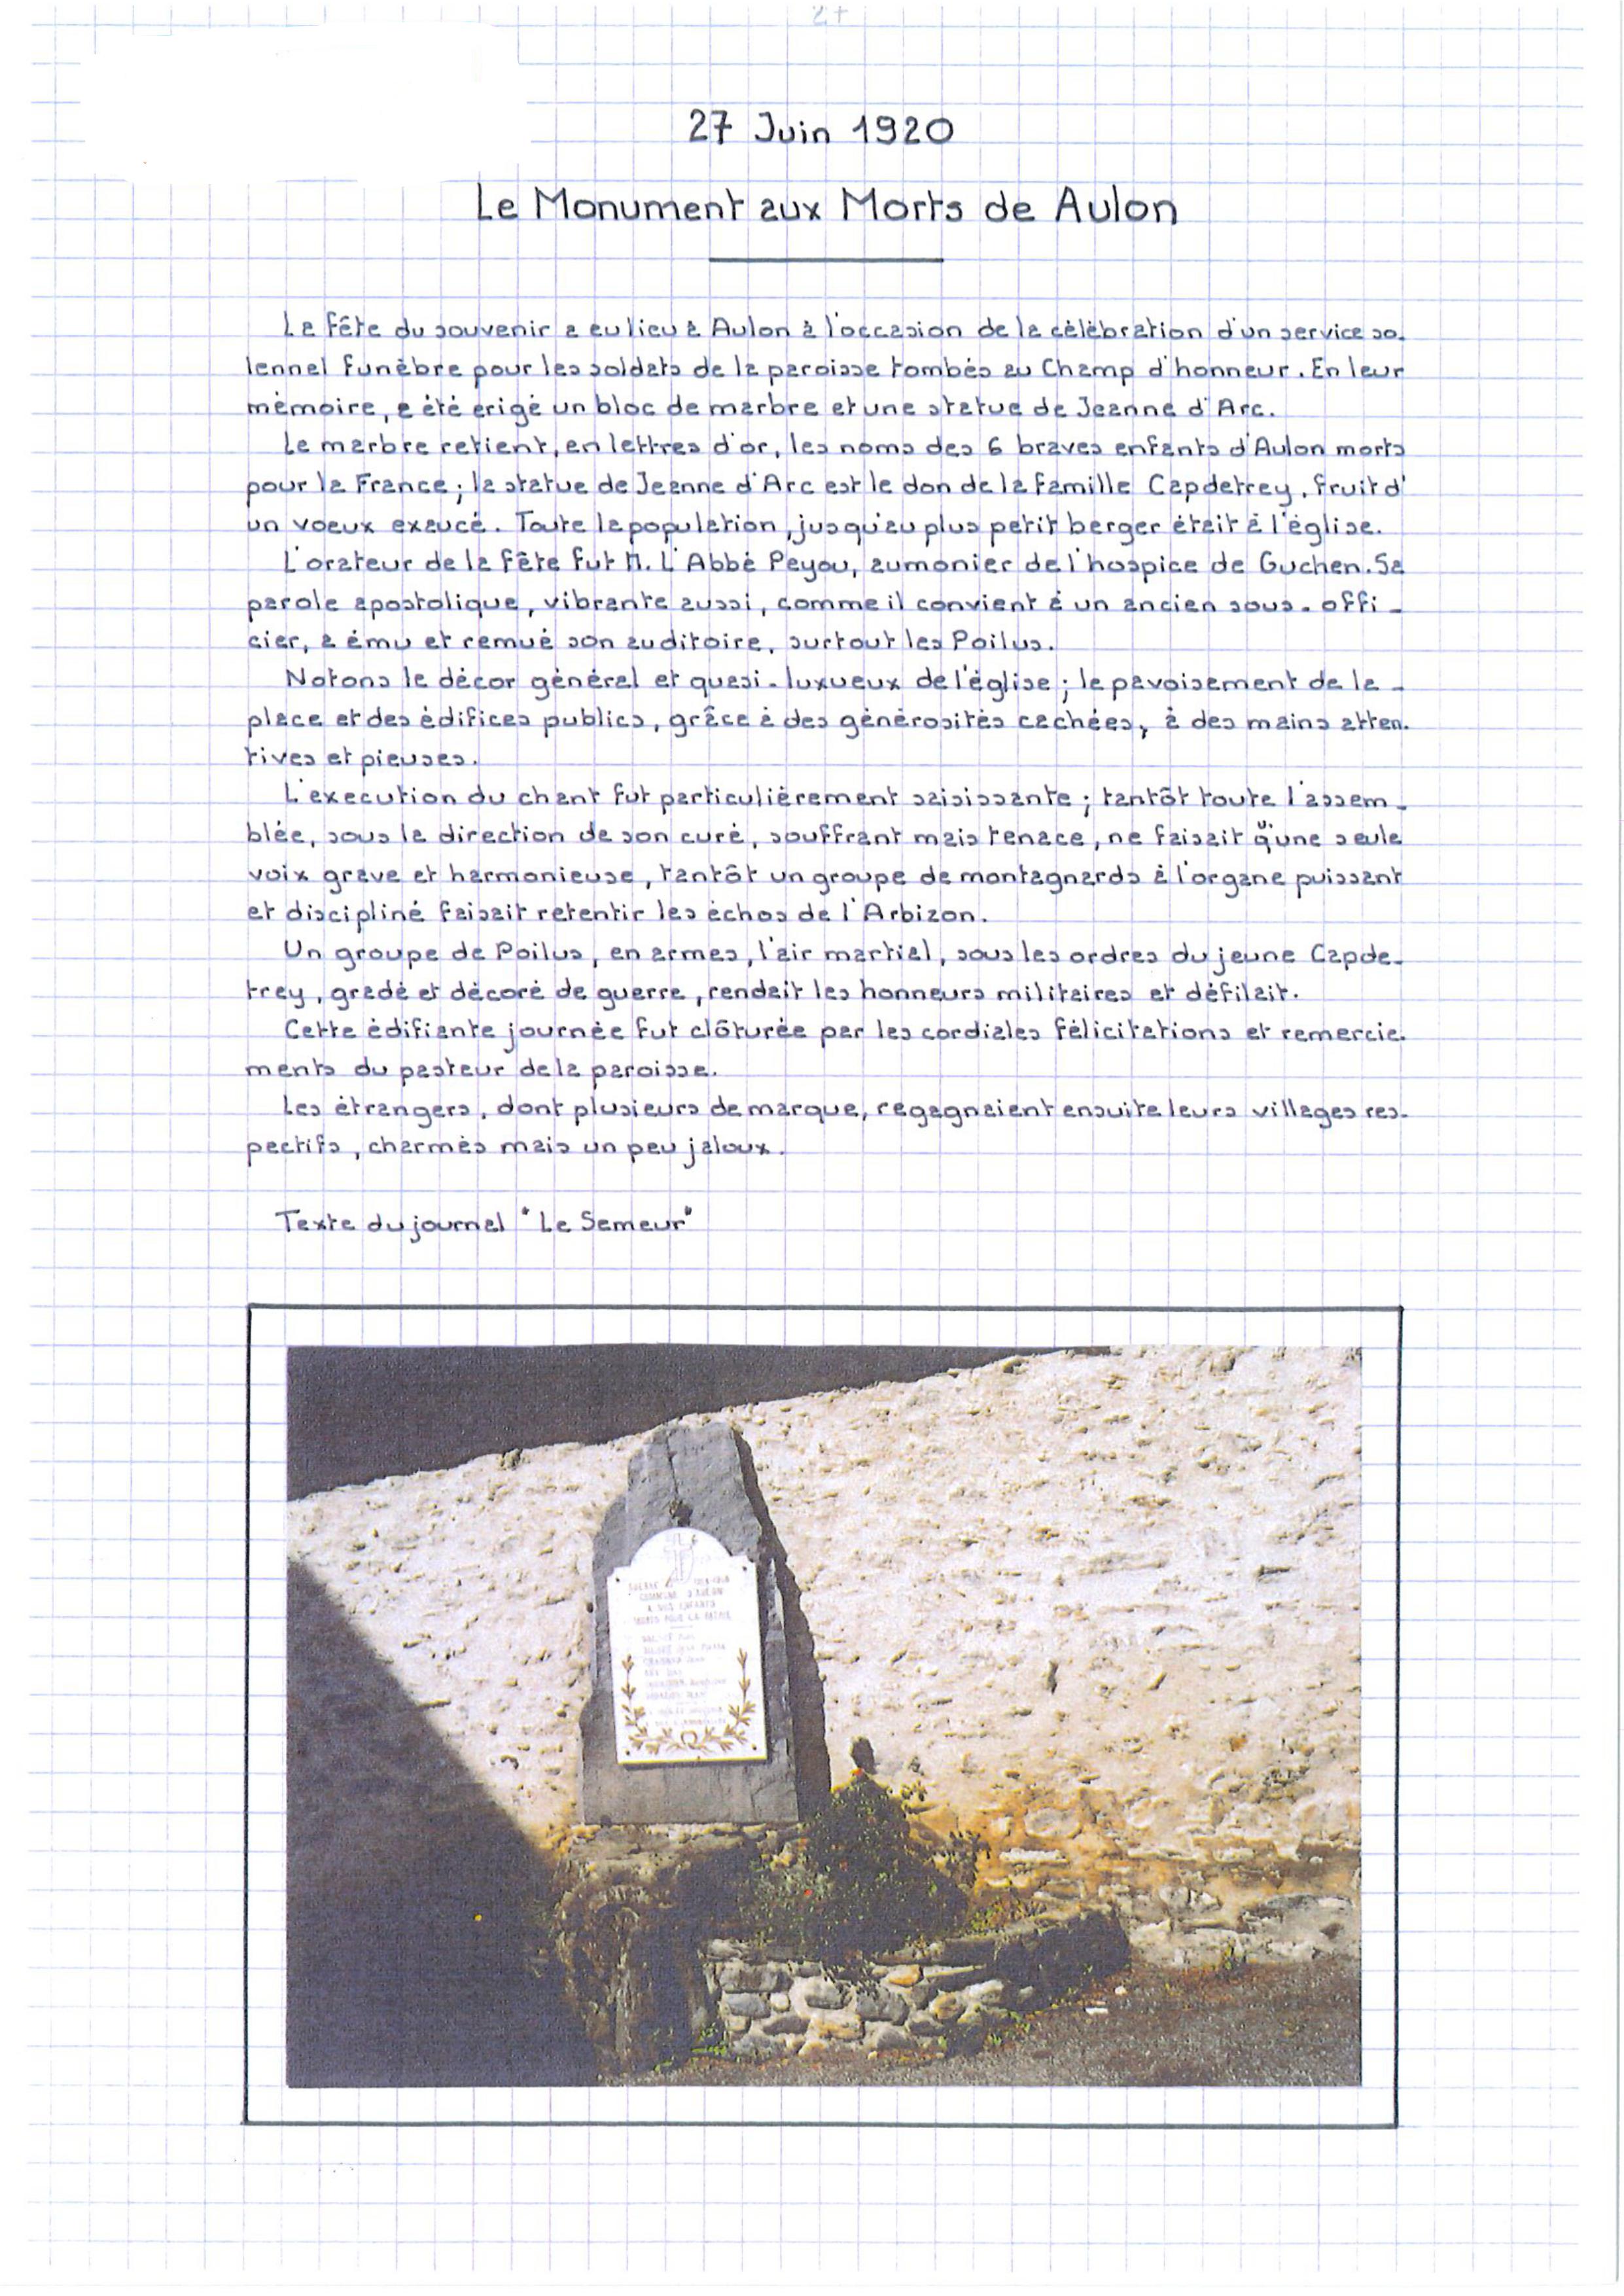 27 Juin 1920
Le Monument aux Morts de Aulon
La fête du souvenir a eu lieu à Aulon à l'occasion de la célèbration d'un service so.
lennel funèbre pour les soldats de la paroisse tombés au Champ d'honneur. En leur
mèmoire, a été erigé un bloc de marbre et une statue de Jeanne d'Arc.
Le marbre retient, en lettres d'or, les noms des 6 braves enfants d'Aulon morts
pour la France ; la statue de Jeanne d'Arc est le don de la famille Capdetrey, fruit d'
un voeux exaucé. Toute la population, jusqu'au plus petit berger était à l'église.
L'orateur de la fête fut M. L'Abbé Peyou, aumonier de l'hospice de Guchen. Sa
parole apostolique, vibrante aussi, comme il convient à un ancien sous-offi-
cier, a ému et remué son auditoire, surtout les Poilus.
Notons le décor général et quasi-luxueux de l'église ; le pavoisement de la -
place et des édifices publics, grâce à des générosités cachées, à des mains atten.
tives et pieuses.
L'execution du chant fut particulièrement saisissante ; tantôt toute l'assem-
blée, sous la direction de son curé, souffrant mais tenace, ne faisait qu'une seule
voix grave et harmonieuse, tantôt un groupe de montagnards à l'organe puissant
et discipliné faisait retentir les échos de l'Arbizon.
Un groupe de Poilus, en armes, l'air martial, sous les ordres du jeune Capde-
trey, gradé et décoré de guerre, rendait les honneurs militaires et défilait.
Cette édifiante journée fut clôturée par les cordiales félicitations et remercie.
ments du pasteur de la paroisse.
Les étrangers, dont plusieurs de marque, regagnaient ensuite leurs villages res-
pectifs, charmés mais un peu jaloux.
Texte du journal "Le Semeur"
COMMUNE D'AULON
A SES ENFANTS
MORTS POUR LA PATRIE